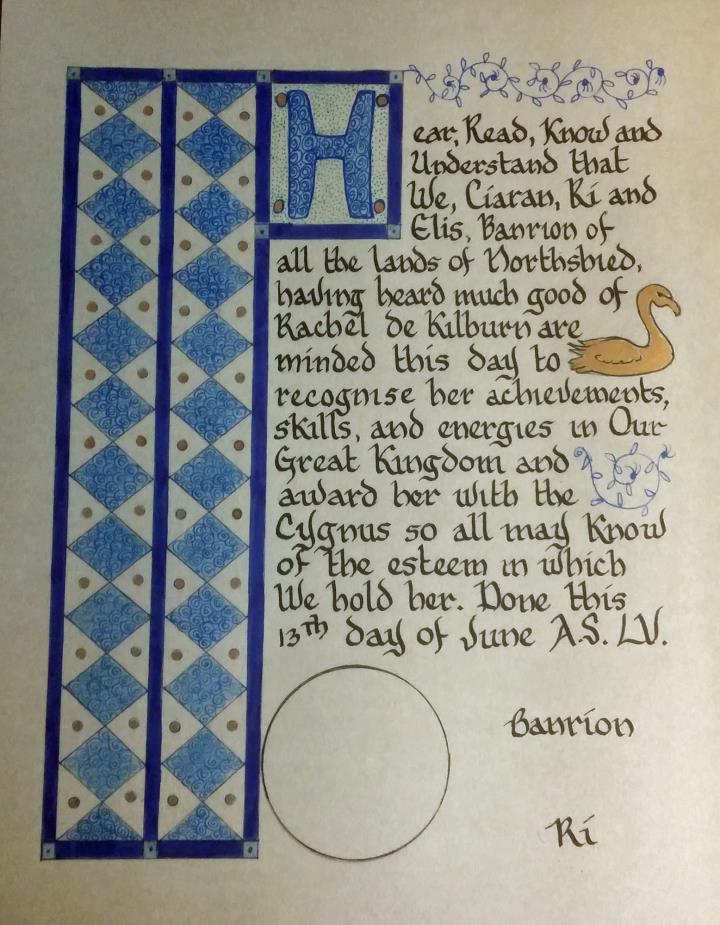 Hear, Read, Know and
Understand that
We, Ciaran, Rí and
Elis, Banrion of
all the lands of Northshied,
having heard much good of
Rachel de Kilburn are
minded this day to
recognise her achievements,
skills, and energies in Our
Great Kingdom and
award her with the
Cygnus so all may know
of the esteem in which
We hold her. Done this
13th day of June A.S. LV.
Banríon
Rí